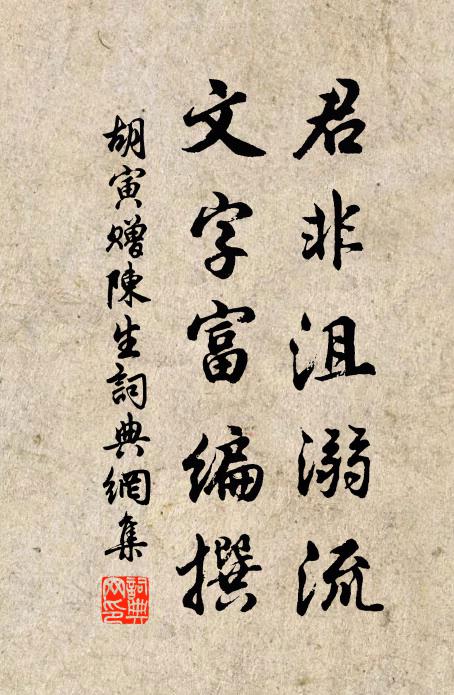 君非沮溺流
文字富編撰
胡寅贈陳生詞典網集
詞典
网印